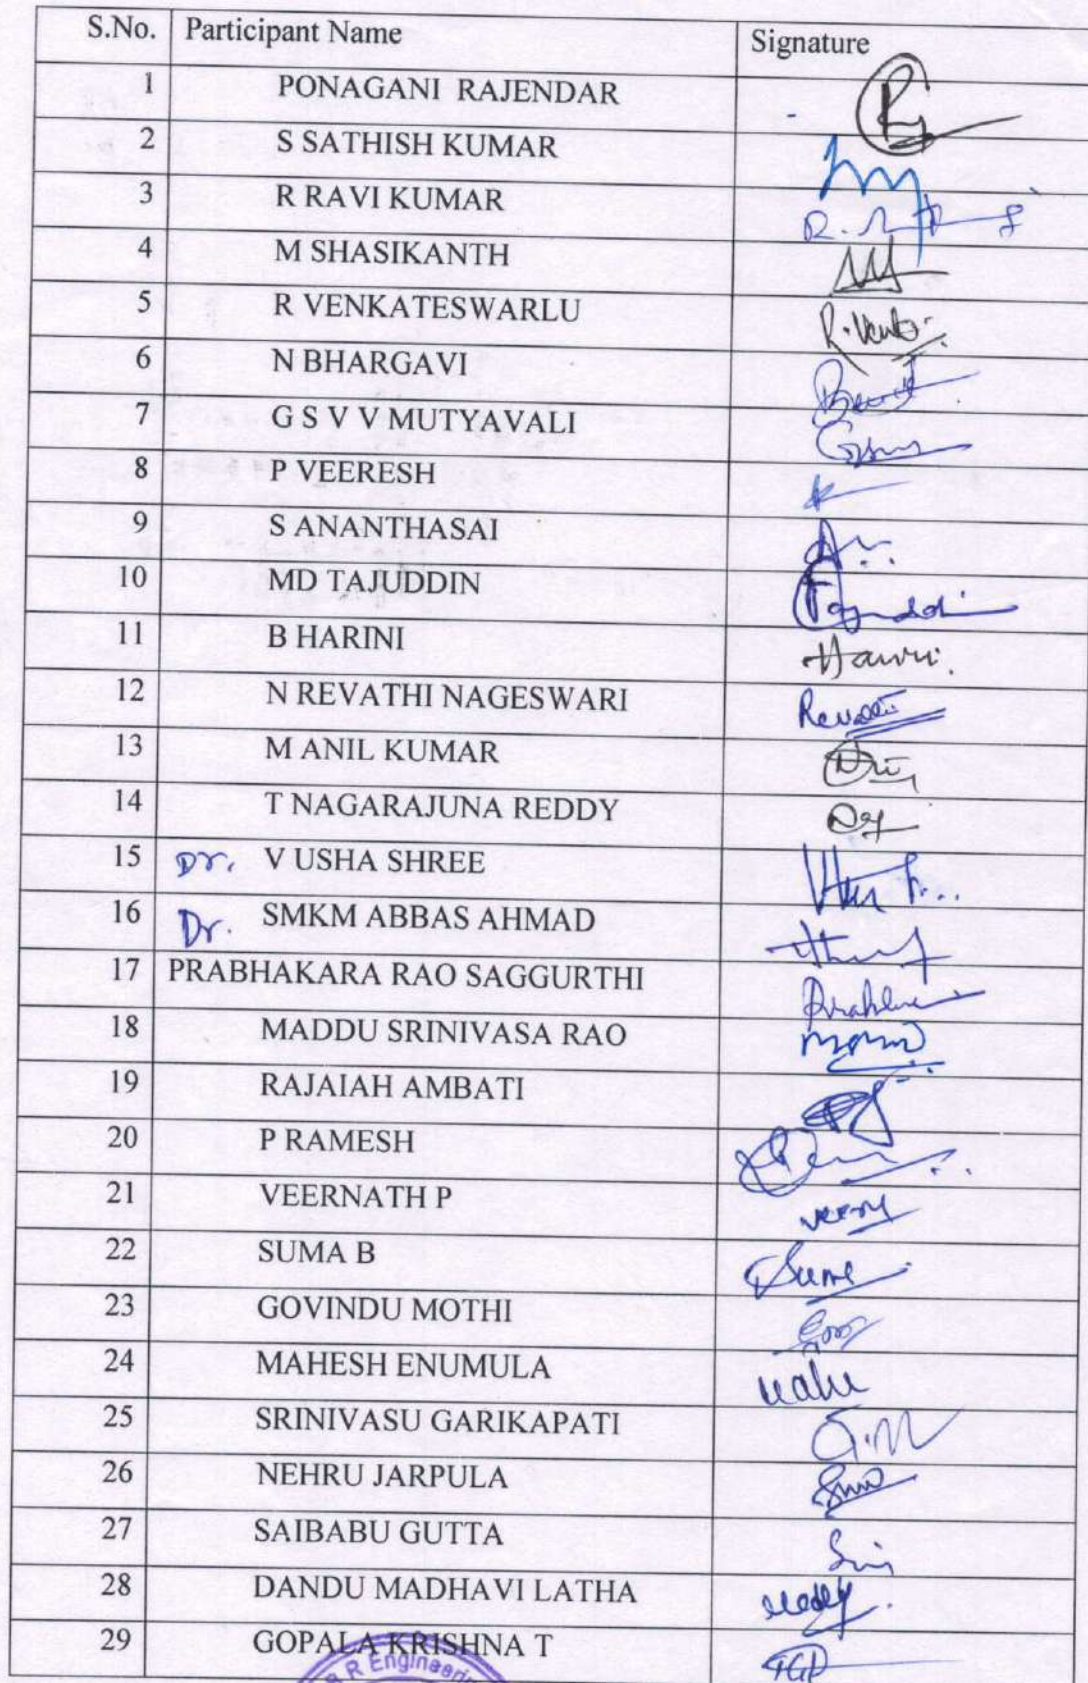 S.No. Participant Name Signature
1 PONAGANI RAJENDAR
2 S SATHISH KUMAR
3 R RAVI KUMAR
4 M SHASIKANTH
5 R VENKATESWARLU R.Venk
6 N BHARGAVI
7 G S V V MUTYAVALI
8 P VEERESH
9 S ANANTHASAI
10 MD TAJUDDIN Tajuddin
11 B HARINI Harini
12 N REVATHI NAGESWARI Revathi
13 M ANIL KUMAR
14 T NAGARAJUNA REDDY
15 Dr. V USHA SHREE
16 Dr. SMKM ABBAS AHMAD
17 PRABHAKARA RAO SAGGURTHI
18 MADDU SRINIVASA RAO
19 RAJAIAH AMBATI
20 P RAMESH
21 VEERNATH P
22 SUMA B Suma
23 GOVINDU MOTHI
24 MAHESH ENUMULA
25 SRINIVASU GARIKAPATI
26 NEHRU JARPULA
27 SAIBABU GUTTA
28 DANDU MADHAVI LATHA
29 GOPALA KRISHNA T TGP
R Engineerin